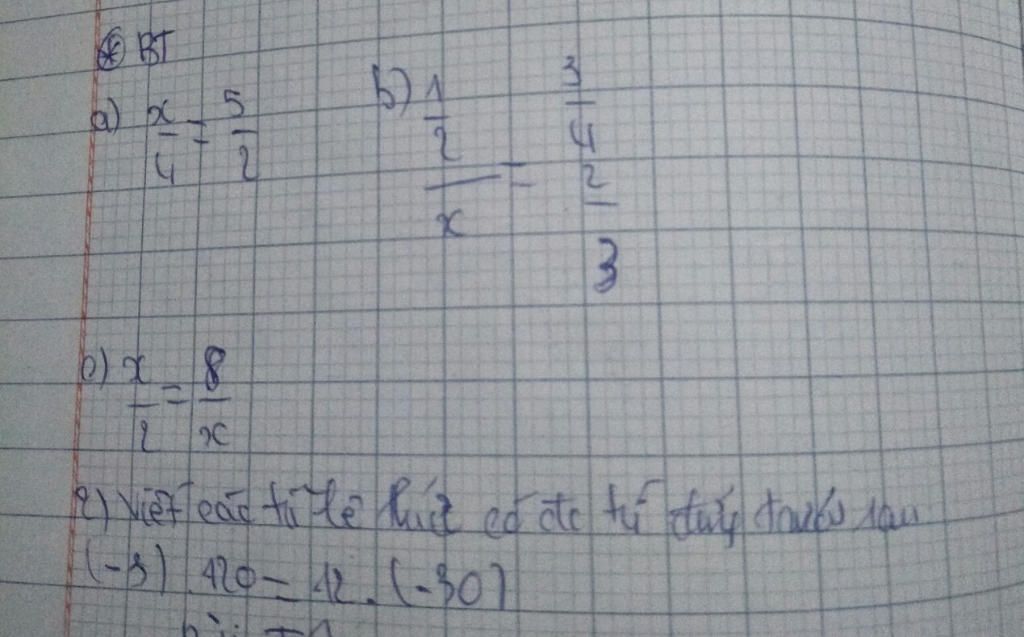 * BT
a) x/4 = 5/2
b) 1/2 / x = 3/4 / 2/3
c) x/2 = 8/x
2) Viết các tỉ lệ thức có đc từ đẳng thức sau
(-3) . 120 = 12 . (-30)